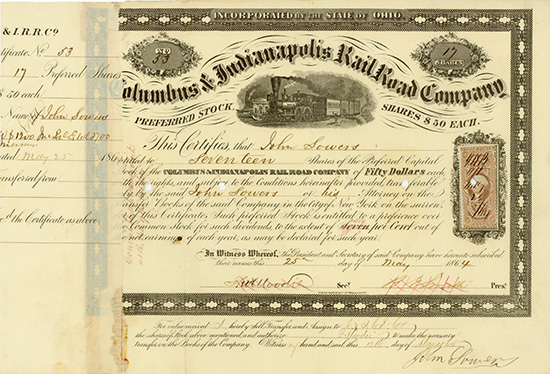 & I. R. R. Co
Certificate No 53
17 Preferred Shares
$ 50 each.
Name of John Sowers
Dated May 25 186
Transferred from
for the Certificate as above
INCORPORATED BY THE STATE OF OHIO.
No 53
17 SHARES
Columbus & Indianapolis Rail Road Company
PREFERRED STOCK,
SHARES $ 50 EACH.
This Certifies that John Sowers
is entitled to Seventeen Shares of the Preferred Capital
Stock of the COLUMBUS & INDIANAPOLIS RAIL ROAD COMPANY of Fifty Dollars each
with the rights, and subject to the Conditions hereinafter provided, transferable
by the said John Sowers or his Attorney on the
Transfer Books of the said Company in the City of New York on the surren-
der of this Certificate. Such preferred Stock is entitled to a preference over
Common Stock for such dividends, to the extent of seven per Cent out of
net earnings of each year, as may be declared for such year.
In Witness Whereof, the President and Secretary of said Company have hereunto subscribed
their names this 25th day of May 1864
Secy
Prest
For value received I hereby Sell, Transfer and Assign to
the shares of Stock above mentioned, and authorize to make the necessary
transfer on the Books of the Company. Witness my hand and seal this day of
John Sowers